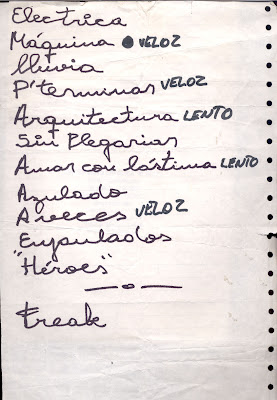 Electrica
Máquina ● VELOZ
lluvia
P'terminar VELOZ
Arquitectura LENTO
Sin Plegarias
Amar con lástima LENTO
Azulado
A veces VELOZ
Enpulados
"Héroes"
—o—
Freak